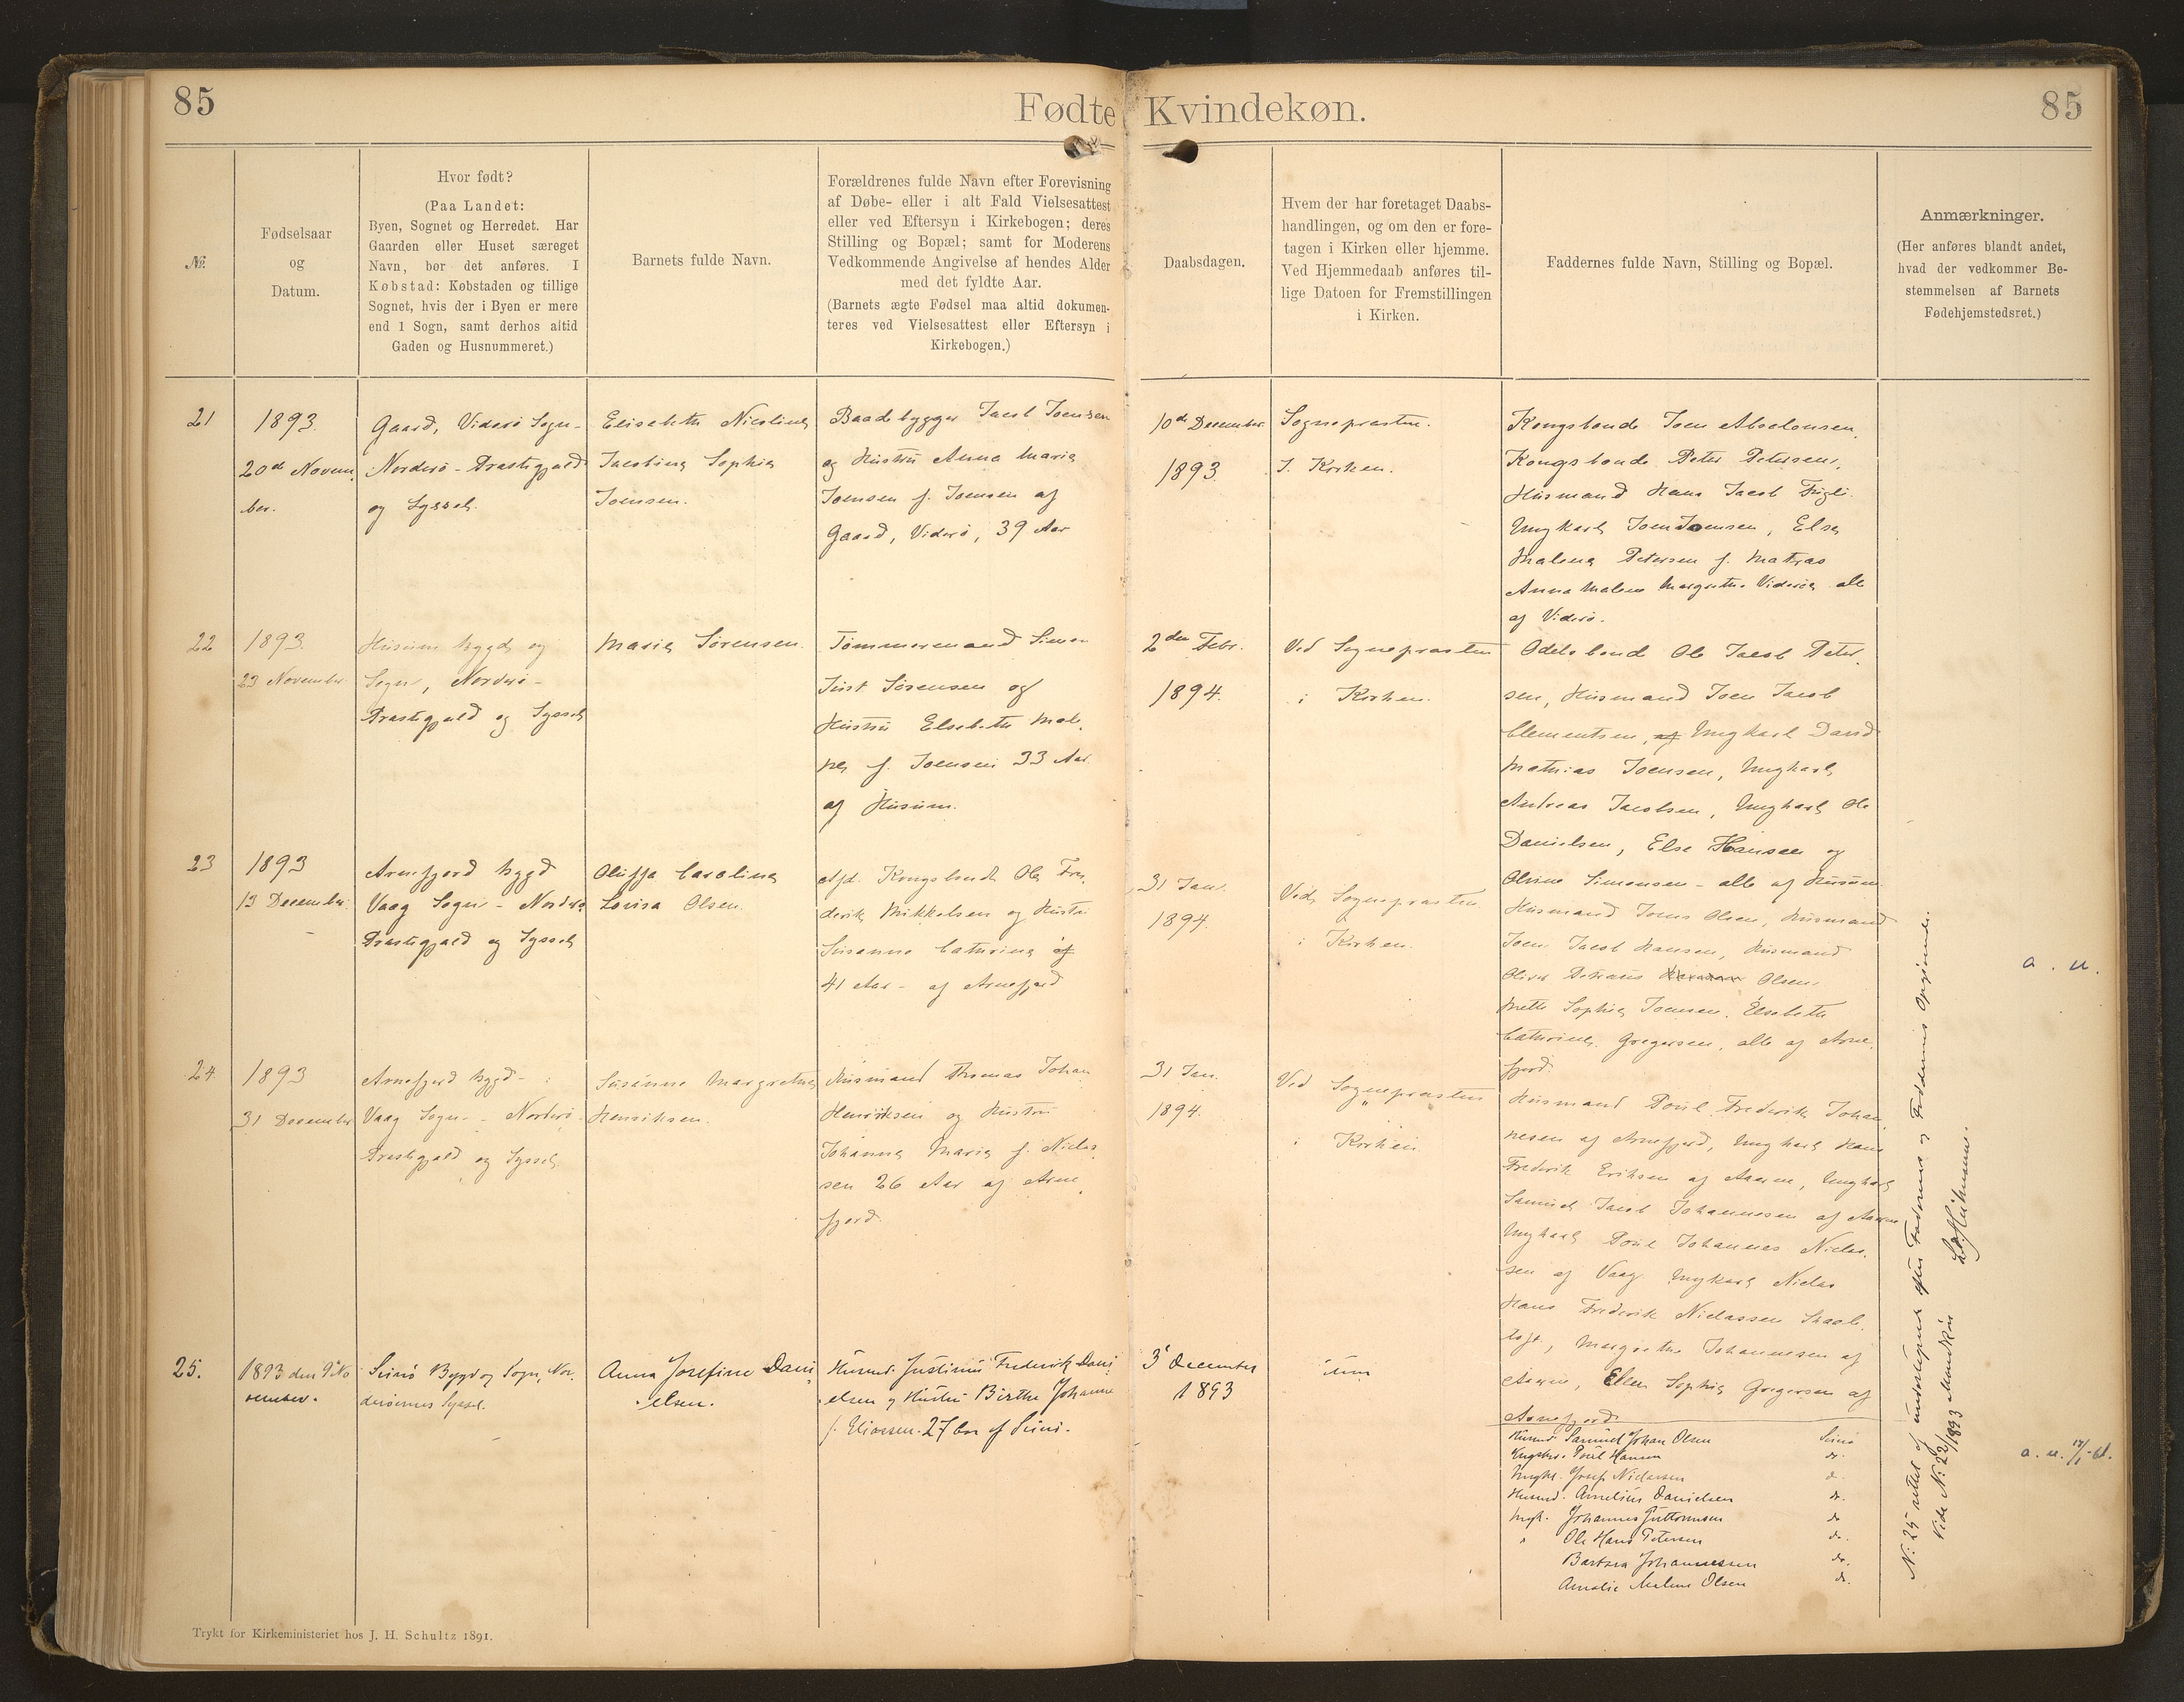 85
Fødte Kvindekøn.
85
№.
Fødselsaar
og
Datum.
Hvor født?
(Paa Landet:
Byen, Sognet og Herredet. Har
Gaarden eller Huset særeget
Navn, bør det anføres. I
Købstad: Købstaden og tillige
Sognet, hvis der i Byen er mere
end 1 Sogn, samt derhos altid
Gaden og Husnummeret.)
Barnets fulde Navn.
Forældrenes fulde Navn efter Forevisning
af Døbe- eller i alt Fald Vielsesattest
eller ved Eftersyn i Kirkebogen; deres
Stilling og Bopæl; samt for Moderens
Vedkommende Angivelse af hendes Alder
med det fyldte Aar.
(Barnets ægte Fødsel maa altid dokumen-
teres ved Vielsesattest eller Eftersyn i
Kirkebogen.)
Daabsdagen.
Hvem der har foretaget Daabs-
handlingen, og om den er fore-
tagen i Kirken eller hjemme.
Ved Hjemmedaab anføres til-
lige Datoen for Fremstillingen
i Kirken.
Faddernes fulde Navn, Stilling og Bopæl.
Anmærkninger.
(Her anføres blandt andet,
hvad der vedkommer Be-
stemmelsen af Barnets
Fødehjemstedsret.)
21
1893.
20de Novem,
ber.
Gaard, Viderø Sogn-
Norderø - Præstegjæld
og Syssel.
Elisabeth Nicoline
Jacobine Sophie
Joensen.
Baadebygger Jacob Joensen
og Hustru Anna Marie
Joensen f. Joensen af
Gaard, Viderø, 39 Aar
10de December
1893.
Sognepræsten.
I. Kirken.
Kongsbonde Joen Absalonsen,
Kongsbonde Peter Petersen,
Husmand Hans Jacob Fugli.
Ungkarl Joen Joensen, Else
Malene Petersen f. Matras
Anna Malene Margrethe Viderøe alle
af Viderø.
22
1893.
23 November
Husum bygd og
Sogn, Norderø-
Præstegjæld og Syssel
Marie Sørensen.
Tømmermand Simon
Just Sørensen og
Hustru Elsebeth Male,
ne f. Joensen 33 Aar
af Husum.
2den Febr.
1894.
Ved Sognepræsten
i Kirken.
Odelsbonde Ole Jacob Peter,
sen, Husmand Joen Jacob
Clementsen, af Ungkarl David
Mathias Joensen, Ungkarl
Andreas Jacobsen, Ungkarl Ole
Danielsen, Else Hansen og
Olivine Simonsen - alle af Husum.
23
1893
13 December.
Arnefjord bygd
Vaag Sogn - Norderø
Præstegjæld og Syssel
Oluffa Caroline
Lovisa Olsen.
Afd. Kongsbonde Ole Fre,
derik Mikkelsen og Hustru
Susanne Cathrine af
41 Aar - af Arnefjord
31 Jan.
1894.
Ved Sognepræsten
i Kirken.
Husmand Joens Olsen, Husmand
Joen Jacob Hansen, Husmand
Oliver Olsen,
Mette Sophie Joensen, Elsebeth
Cathrine Gregersen, alle af Arne,
fjord.
a. u.
24
1893
31 December
Arnefjord bygd-
Vaag Sogn - Norderø-
Præstegjæld og Syssel
Susanne Margrethe
Henriksen.
Husmand Thomas Johan
Henriksen og Hustru
Johanne Marie f. Niclas,
sen 26 Aar af Arne,
fjord.
31 Jan.
1894.
Ved Sognepræsten
i Kirken
Husmand Poul Frederik Johan,
nesen af Arnefjord, Ungkarl Hans
Frederik Eriksen af Aarne, Ungkarl
Samuel Jacob Johannesen af Aarne
Ungkarl Poul Johannes Niclas,
sen af Vaag Ungkarl Niclas
Hans Frederik Niclassen Skaale,
toft, Margrethe Johannesen af
Aarne, Ellen Sophie Gregersen af
Arnefjord.
25.
1893 den 9' No
vember.
Svinø Bygd og Sogn, Nor,
derøernes Syssel.
Anna Josefine Dani,
elsen.
Husmd. Justinus Frederik Dani,
elsen og Hustru Birthe Johanne
f. Eliassen. 27 Aar af Svinø.
3' December
1893
Husmd. Samuel Johan Olsen Svinø
Ungkl. Poul Hansen do.
Ungkl. Josef Niclassen d.
Husmd. Cornelius Danielsen do.
Ungk. Johannes Guttormsen do
" Ole Hans Petersen do.
Barbara Johannessen do.
Amalie Malene Olsen do.
a. u. 17/1-61.
N: 25 rettet af undertegnede efter Faderens og Faddernes Opgivende.
Vide N: 22/1893 Mandkøn